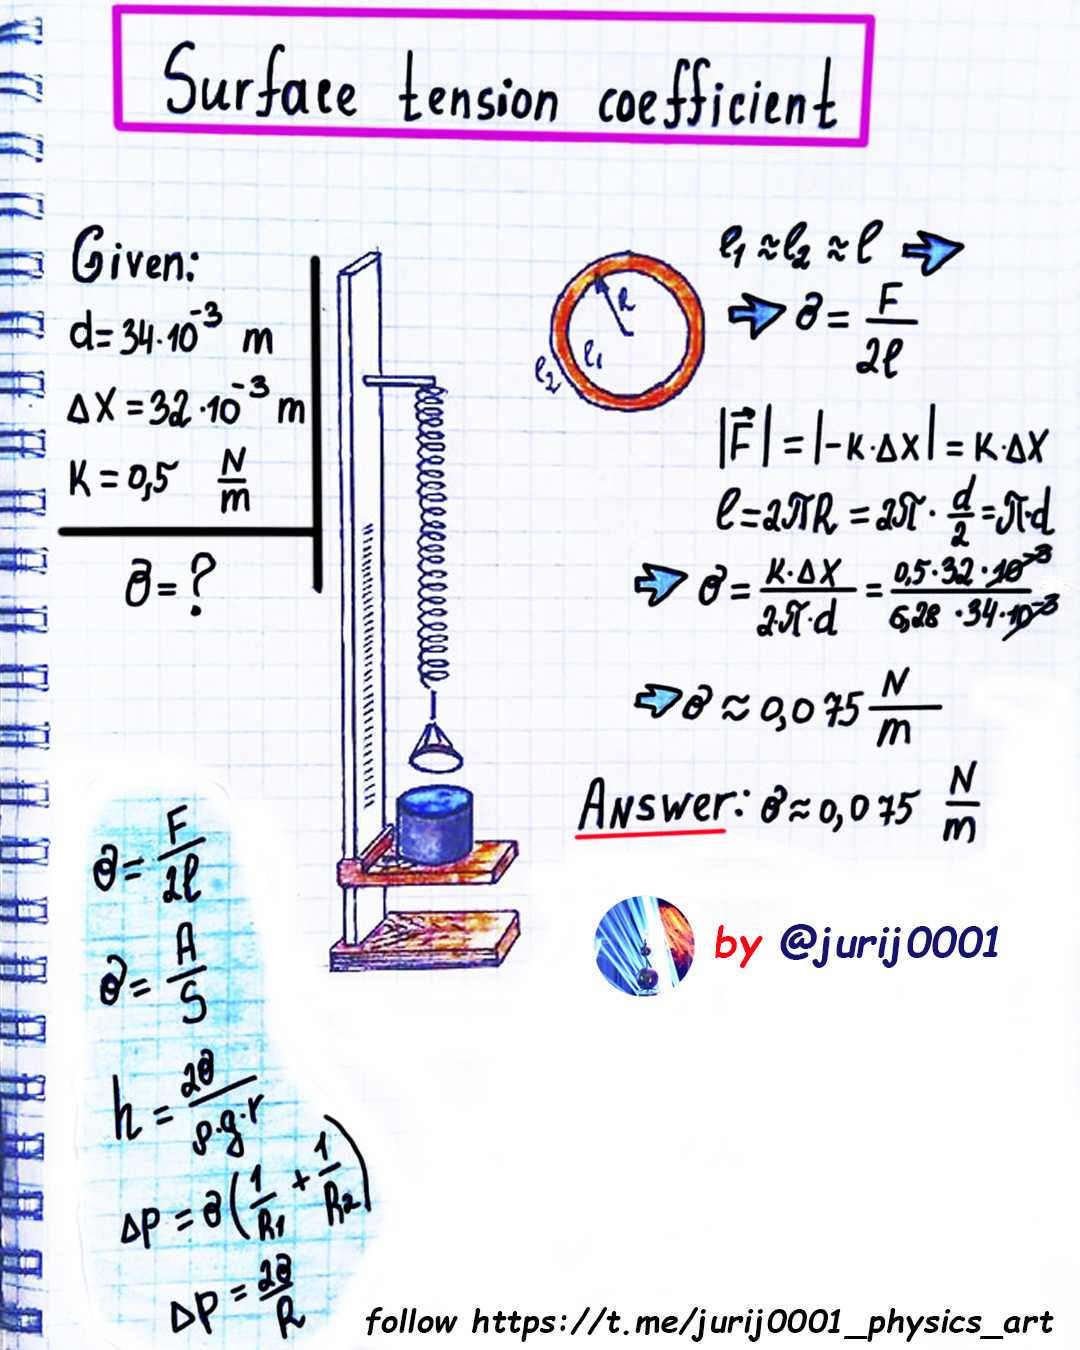 Surface tension coefficient
Given:
d=34·10⁻³ m
Δx=32·10⁻³ m
K=0,5 N/m
σ=?
R
ℓ₁
ℓ₂
ℓ₁≈ℓ₂≈ℓ ⇒
⇒ σ= F/2ℓ
|F⃗|=|-K·Δx|=K·Δx
ℓ=2πR=2π·d/2=π·d
⇒ σ= K·Δx/2·π·d = 0,5·32·10⁻³/6,28·34·10⁻³
⇒ σ≈0,075 N/m
Answer: σ≈0,075 N/m
by @jurij0001
σ= F/2ℓ
σ= A/S
h= 2σ/ρ·g·r
ΔP=σ(1/R₁+1/R₂)
ΔP=2σ/R
follow https://t.me/jurij0001_physics_art